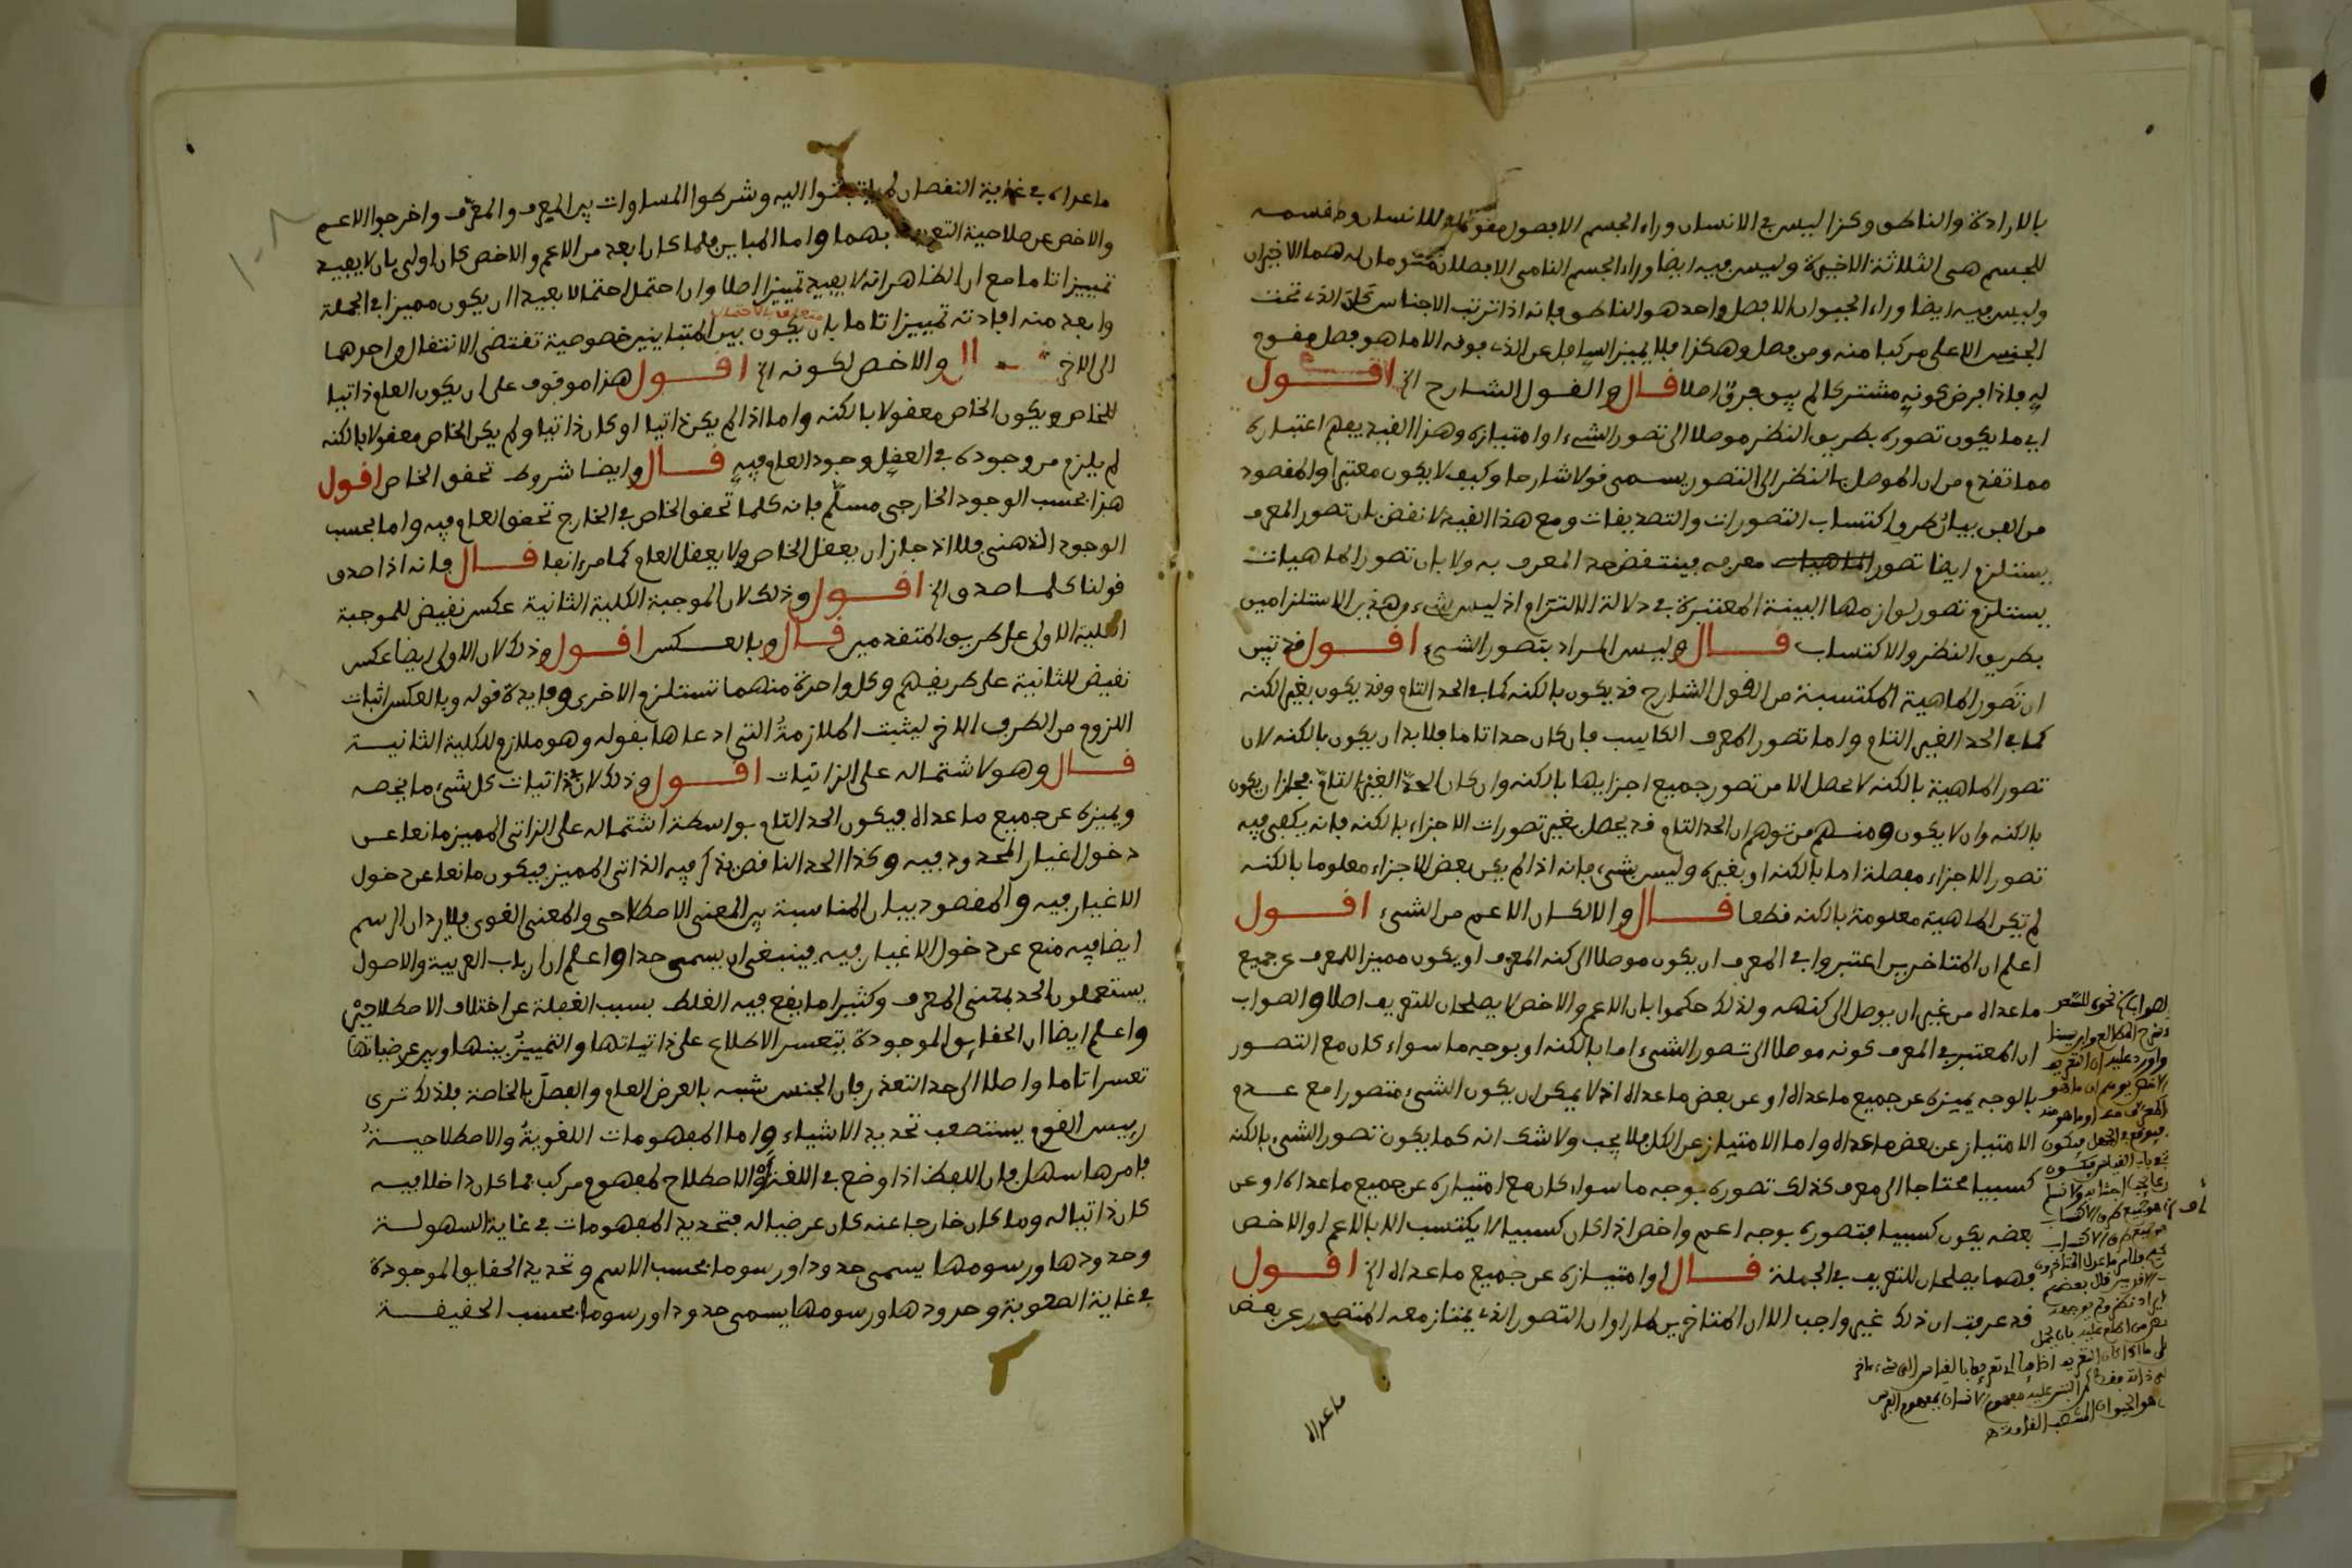 بالارادة والناطق وكذا ليس في الانسان وراء الجسم الا فصول مقومة للانسان ومقسمة
للجسم هي الثلاثة الاخيرة وليس فيه ايضا وراء الجسم النامي الا فصلان مقومان له هما الاخيران
وليس فيه ايضا وراء الحيوان الا فصل واحد هو الناطق فانه اذا ترتب الاجناس كان الذي تحت
الجنس الاعلى مركبا منه ومن فصل وهكذا فلا يميز السافل عن الذي فوقه الا ما هو فصل مقوم
له فاذا فرض كونه مشتركا لم يبق فرق اصلا قال والقول الشارح الخ اقول
اي ما يكون تصوره بطريق النظر موصلا الى تصور الشيء او امتيازه وهذا القيد يعلم اعتباره
مما تقدم من ان الموصل بالنظر الى التصور يسمى قولا شارحا وكيف لا يكون معتبرا والمقصود
من الفن بيان طرق اكتساب التصورات والتصديقات ومع هذا القيد لا نقض بان تصور المعرف
يستلزم ايضا تصور الماهيات معرفه فينتقض حد المعرف به ولا بان تصور الماهيات
يستلزم تصور لوازمها البينة المعتبرة في دلالة الالتزام اذ ليس شيء من هذين الاستلزامين
بطريق النظر والاكتساب قال وليس المراد بتصور الشيء اقول قد تبين
ان تصور الماهية المكتسبة من القول الشارح قد يكون بالكنه كما في الحد التام وقد يكون بغير الكنه
كما في الحد الغير التام واما تصور المعرف الكاسب فان كان حدا تاما فلا بد ان يكون بالكنه لان
تصور الماهية بالكنه لا يحصل الا من تصور جميع اجزايها بالكنه وان كان الحد الغير التام فجاز ان يكون
بالكنه وان لا يكون ومنهم من توهم ان الحد التام قد يحصل بغير تصورات الاجزاء بالكنه فانه يكفي فيه
تصور الاجزاء مفصلة اما بالكنه او بغيره وليس بشيء فانه اذا لم يكن بعض الاجزاء معلوما بالكنه
لم تكن الماهية معلومة بالكنه قطعا قال والا لكان الاعم من الشيء اقول
اعلم ان المتاخرين اعتبروا في المعرف ان يكون موصلا الى كنه المعرف او يكون مميزا للمعرف عن جميع
ما عداه من غير ان يوصل الى كنهه ولذلك حكموا بان الاعم والاخص لا يصلحان للتعريف اصلا والصواب
ان المعتبر في المعرف كونه موصلا الى تصور الشيء اما بالكنه او بوجه ما سواء كان مع التصور
بالوجه يميزه عن جميع ما عداه او عن بعض ما عداه اذ لا يمكن ان يكون الشيء متصورا مع عدم
الامتياز عن بعض ما عداه واما الامتياز عن الكل فلا يجب ولا شك انه كما يكون تصور الشيء بالكنه
كسبيا محتاجا الى معرف كذلك تصوره بوجه ما سواء كان مع امتيازه عن جميع ما عداه او عن
بعضه يكون كسبيا فتصوره بوجه اعم واخص اذا كان كسبيا لا يكتسب الا بالاعم او الاخص
فهما يصلحان للتعريف في الجملة قال او امتيازه عن جميع ما عداه الخ اقول
قد عرفت ان ذلك غير واجب الا ان المتاخرين لما راوا ان التصور الذي يمتاز معه المتصور عن بعض
ما عداه
ما عداه في غاية النقصان لم يلتفتوا اليه وشرطوا المساوات بين المعرف والمعرف واخرجوا الاعم
والاخص عن صلاحية التعريف بهما واما المباين فلما كان ابعد من الاعم والاخص كان اولى بان لا يفيد
تمييزا تاما مع ان الظاهر انه لا يفيد تمييزا اصلا وان احتمل احتمالا بعيدا ان يكون مميزا في الجملة
متعلق بالاحتمال
وابعد منه افادته تمييزا تاما بان يكون بين المتباينين خصوصية تقتضي الانتقال من احدهما
الى الاخر قال والاخص لكونه الخ اقول هذا موقوف على ان يكون العام ذاتيا
للخاص ويكون الخاص معقولا بالكنه واما اذا لم يكن ذاتيا او كان ذاتيا ولم يكن الخاص معقولا بالكنه
لم يلزم من وجوده في العقل وجود العام فيه قال وايضا شروط تحقق الخاص اقول
هذا بحسب الوجود الخارجي مسلم فانه كلما تحقق الخاص في الخارج تحقق العام فيه واما بحسب
الوجود الذهني فلا اذ جاز ان يعقل الخاص ولا يعقل العام كما مر انفا قال فانه اذا صدق
قولنا كلما صدق الخ اقول وذلك لان الموجبة الكلية الثانية عكس نقيض للموجبة
الكلية الاولى على طريق المتقدمين قال وبالعكس اقول وذلك لان الاولى ايضا عكس
نقيض للثانية على طريقهم وكل واحدة منهما تستلزم الاخرى وفايدة قوله وبالعكس اثبات
اللزوم من الطرف الاخر ليثبت الملازمة التي ادعاها بقوله وهو ملازم للكلية الثانية
قال وهو لاشتماله على الذاتيات اقول وذلك لان ذاتيات كل شيء ما يخصه
ويميزه عن جميع ما عداه فيكون الحد التام بواسطة اشتماله على الذاتي المميز مانعا عن
دخول اغيار المحدود فيه وكذا الحد الناقص يذكر فيه الذاتي المميز فيكون مانعا عن دخول
الاغيار فيه والمقصود بيان المناسبة بين المعنى الاصطلاحي والمعنى اللغوي فلا يرد ان الرسم
ايضا فيه منع عن دخول الاغيار فيه فينبغي ان يسمى حدا واعلم ان ارباب العربية والاصول
يستعملون الحد بمعنى المعرف وكثيرا ما يقع فيه الغلط بسبب الغفلة عن اختلاف الاصطلاحين
واعلم ايضا ان الحقايق الموجودة يتعسر الاطلاع على ذاتياتها والتمييز بينها وبين عرضياتها
تعسرا تاما واصلا الى حد التعذر فان الجنس يشبه بالعرض العام والفصل بالخاصة فلذلك ترى
رييس القوم يستصعب تحديد الاشياء واما المفهومات اللغوية والاصطلاحية
فامرها سهل فان اللفظ اذا وضع في اللغة او الاصطلاح لمفهوم مركب فما كان داخلا فيه
كان ذاتيا له وما كان خارجا عنه كان عرضيا له فتحديد المفهومات في غاية السهولة
وحدودها ورسومها يسمى حدودا ورسوما بحسب الاسم وتحديد الحقايق الموجودة
في غاية الصعوبة وحدودها ورسومها يسمى حدودا ورسوما بحسب الحقيقة